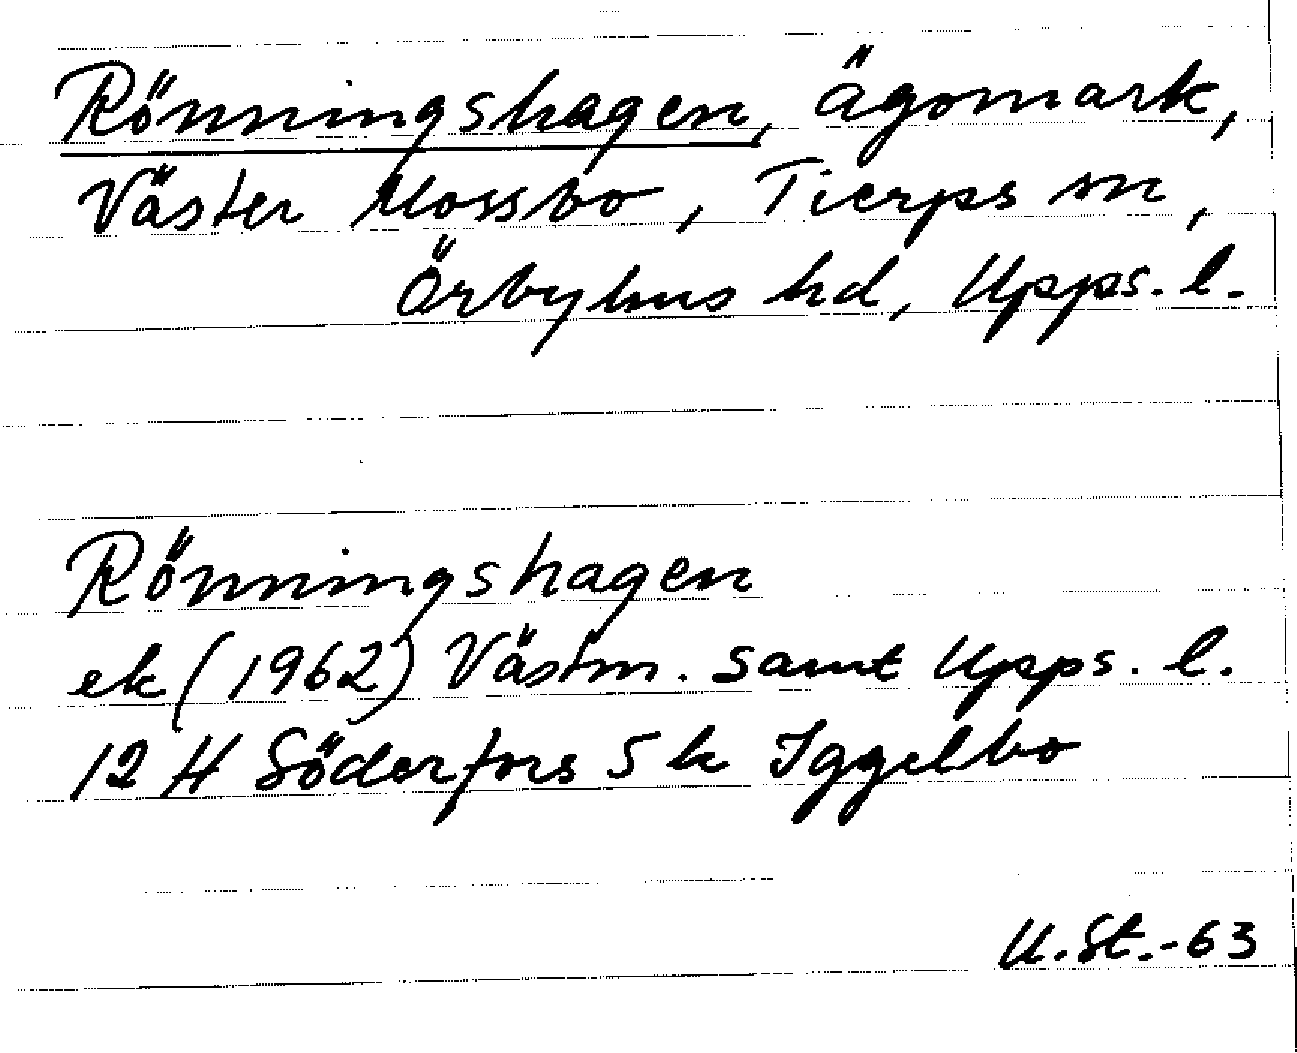 Rönningshagen, ägomark,
Väster Mossbo, Tierps sn,
Örbyhus hd, Upps. l.
Rönningshagen
ek (1962) Västm. samt Upps. l.
12 H Söderfors 5 k Iggelbo
U.St.-63